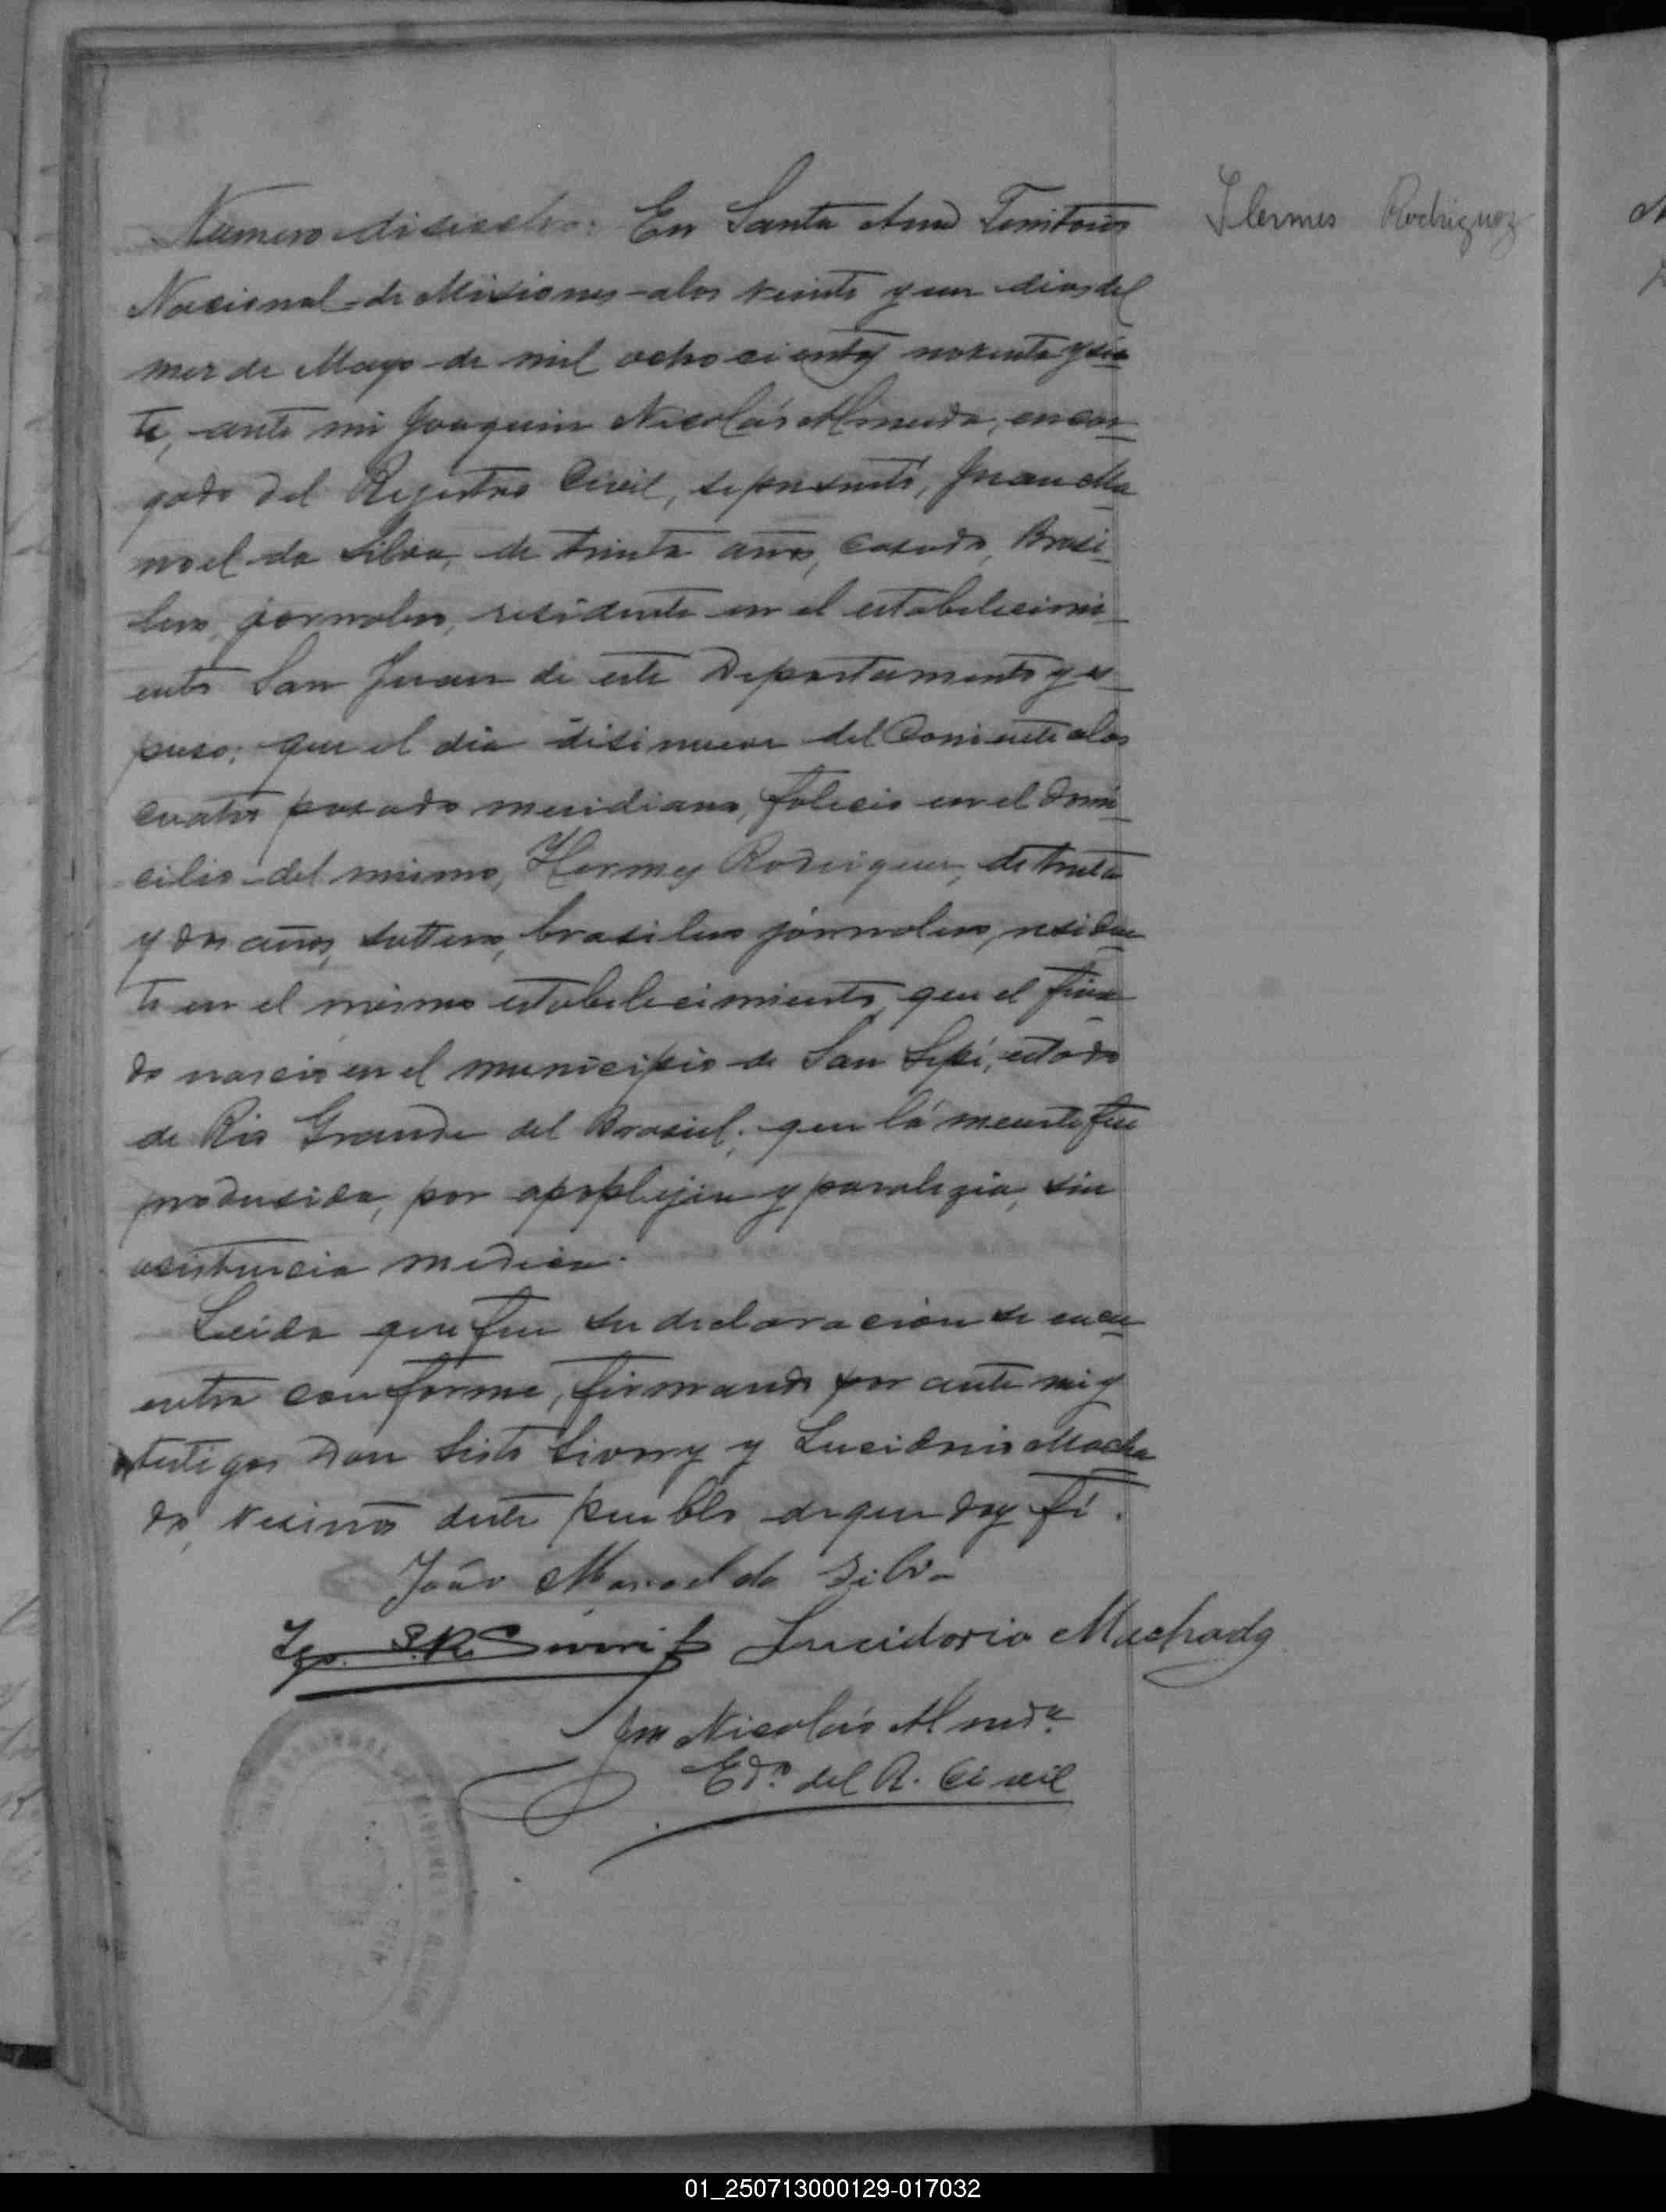 Numero disiocho: En Santa Ana Territorio
Hermes Rodriguez
Nacional de Misiones a los veinte y un dias del
mes de Mayo de mil ochocientos noventa y sie
te, ante mi Joaquin Nicolás Almeida, encar
gado del Registro Civil, se presentó, Juan Ma
noel da Silva, de trinta años, casado, Brasi
lero, jornalero, residente en el estabelecimi
ento San Juan de este Departamento y es
puso; que el dia disinueve del Corriente a las
cuatro pasado meridiano, falecio en el domi
cilio del mismo, Hermes Rodriguez, de trinta
y dos años, soltero, brasilero jornalero, residen
te en el mismo estabelecimiento, que el fina
do nascio en el municipio de San Sepé, estado
de Rio Grande del Brasil; que la muerte fue
produsida, por apoplejia y paralezia, sin
asistencia medica.
Leida que fue su declaracion se encu
entra conforme, firmando por ante mi y
testigos Don Sisto y Lucidorio Macha
do, vesinos deste pueblo de que doy fé.
João Manoel da Silva
Tgo. S.R. Lucidorio Machado
Jm Nicolás Almda
Edo. del R. Civil
01_250713000129-017032